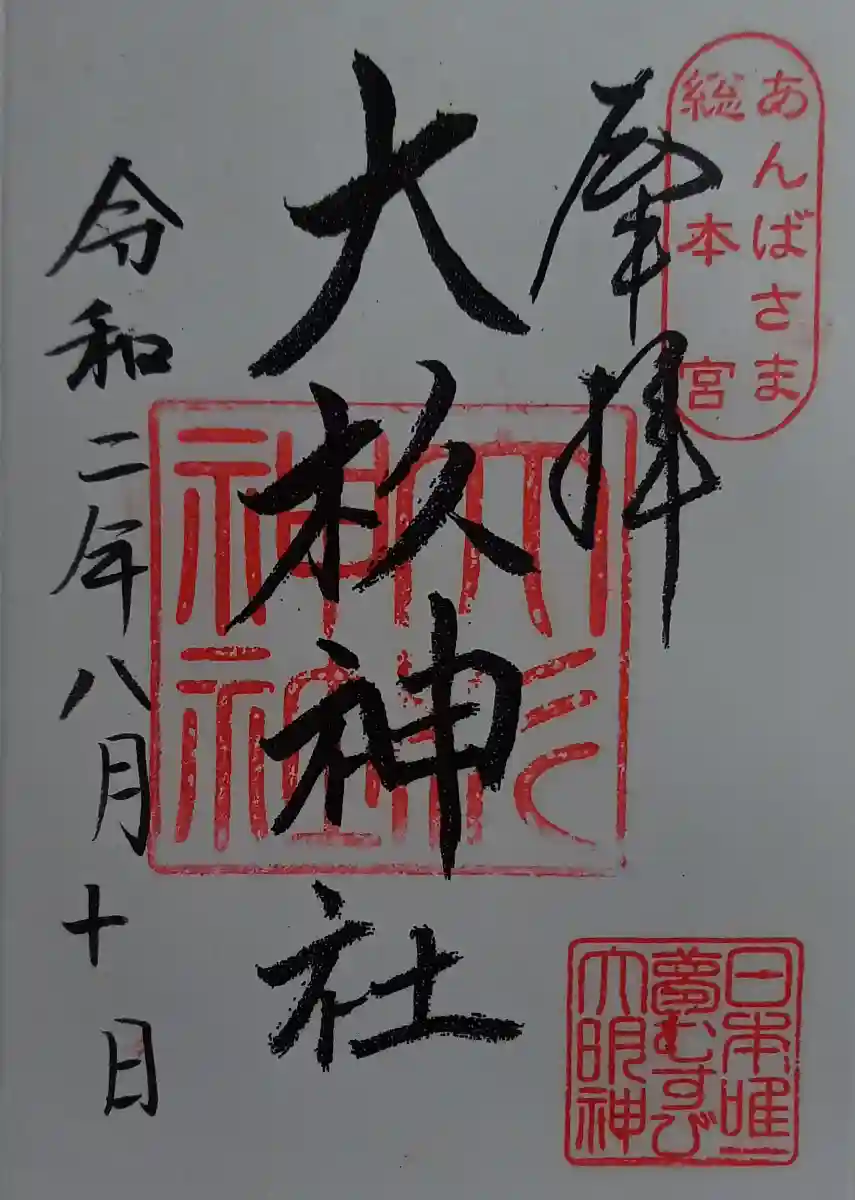 あんばさま
総本宮
奉拝
大杉神社
大杉神社
日本唯一
夢むすび
大明神
令和二年八月十日